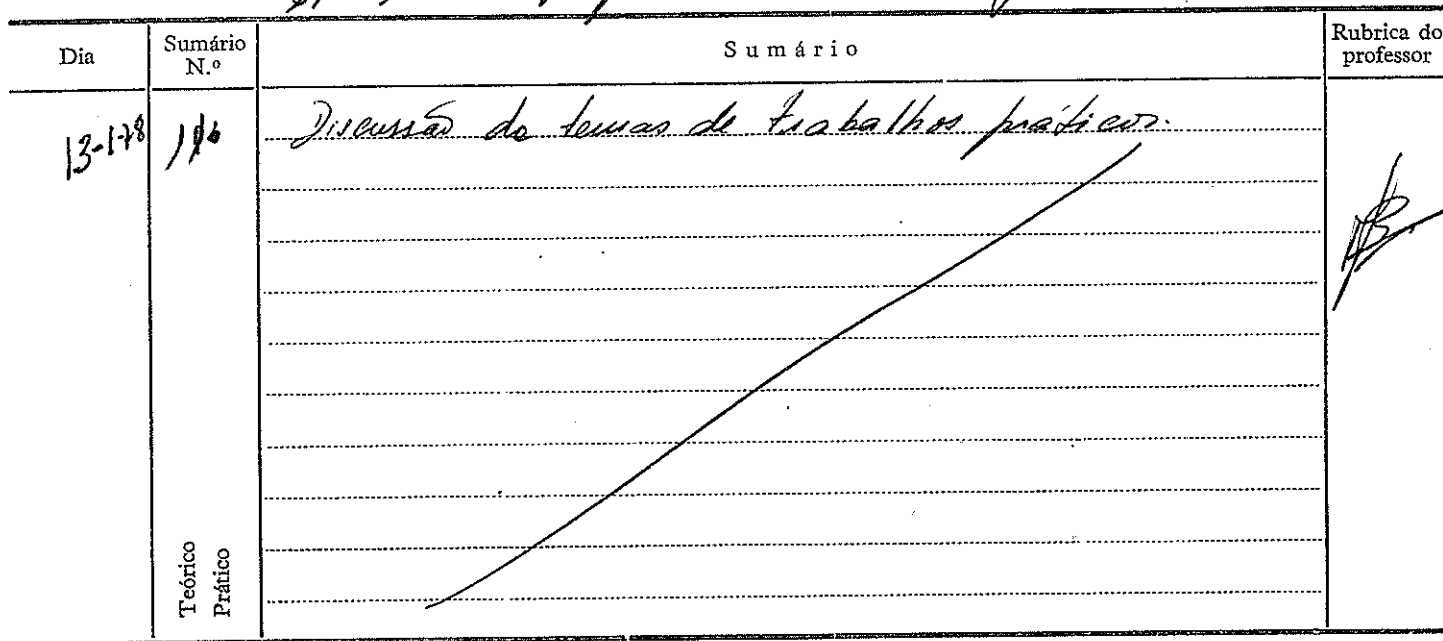 Dia
Sumário N.º
Sumário
Rubrica do professor
13-1-78
Discussão de temas de trabalhos práticos.
Teórico
Prático